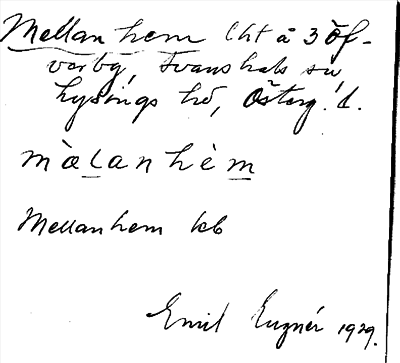 Mellanhem lht å 3 Öf-
varby, Svanshals sn,
Lysings hd, Österg. l.
màlanhèm
Mellanhem kb
Emil Euznér 1929.